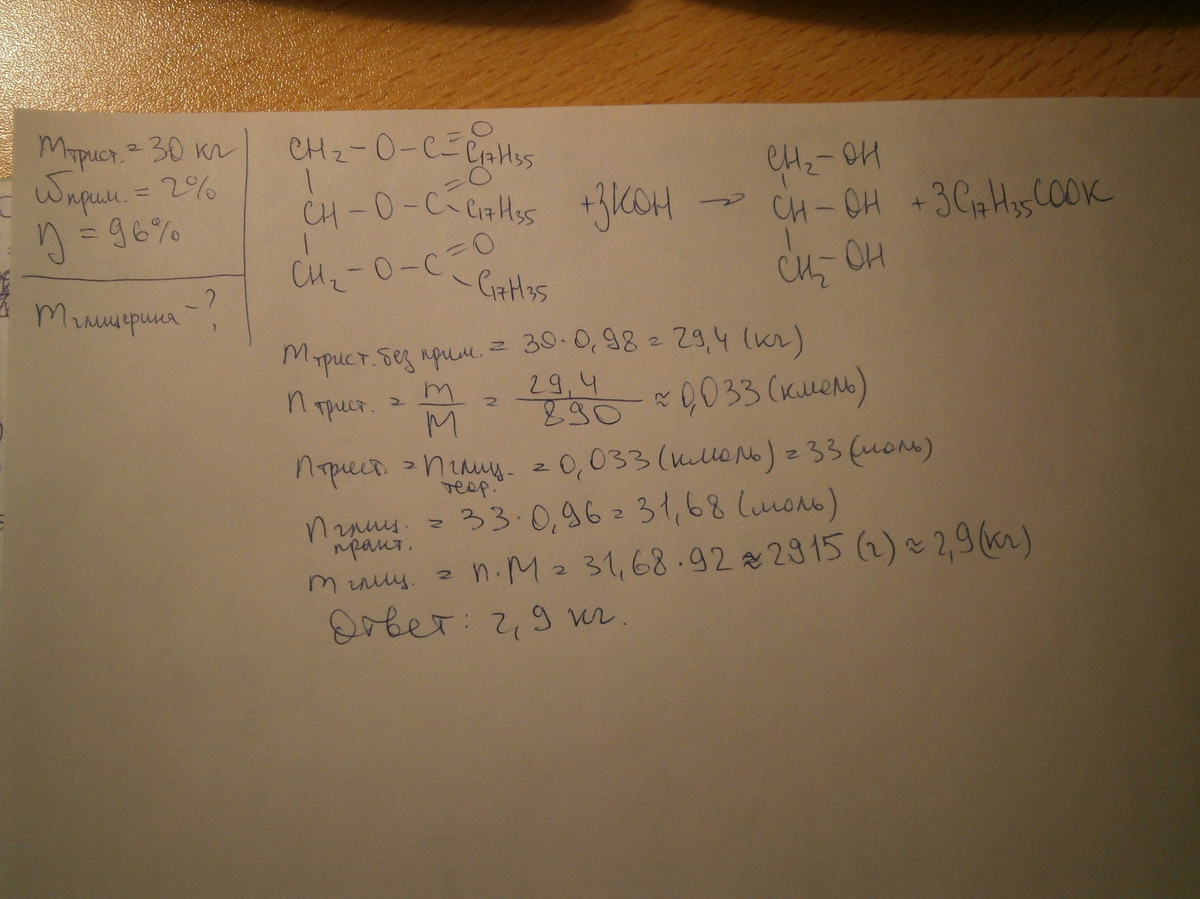 mтрист. = 30 кг
ωприм. = 2%
η = 96%
mглицерина - ?
CH2 - O - C = O C17H35
CH - O - C = O C17H35 + 3KOH → CH2 - OH CH - OH CH2 - OH + 3C17H35COOK
CH2 - O - C = O C17H35
mтрист. без прим. = 30 · 0,98 = 29,4 (кг)
nтрист. = m/M = 29,4/890 ≈ 0,033 (кмоль)
nтрист. = nглиц. теор. = 0,033 (кмоль) = 33 (моль)
nглиц. практ. = 33 · 0,96 = 31,68 (моль)
mглиц. = n · M = 31,68 · 92 ≈ 2915 (г) ≈ 2,9 (кг)
Ответ: 2,9 кг.